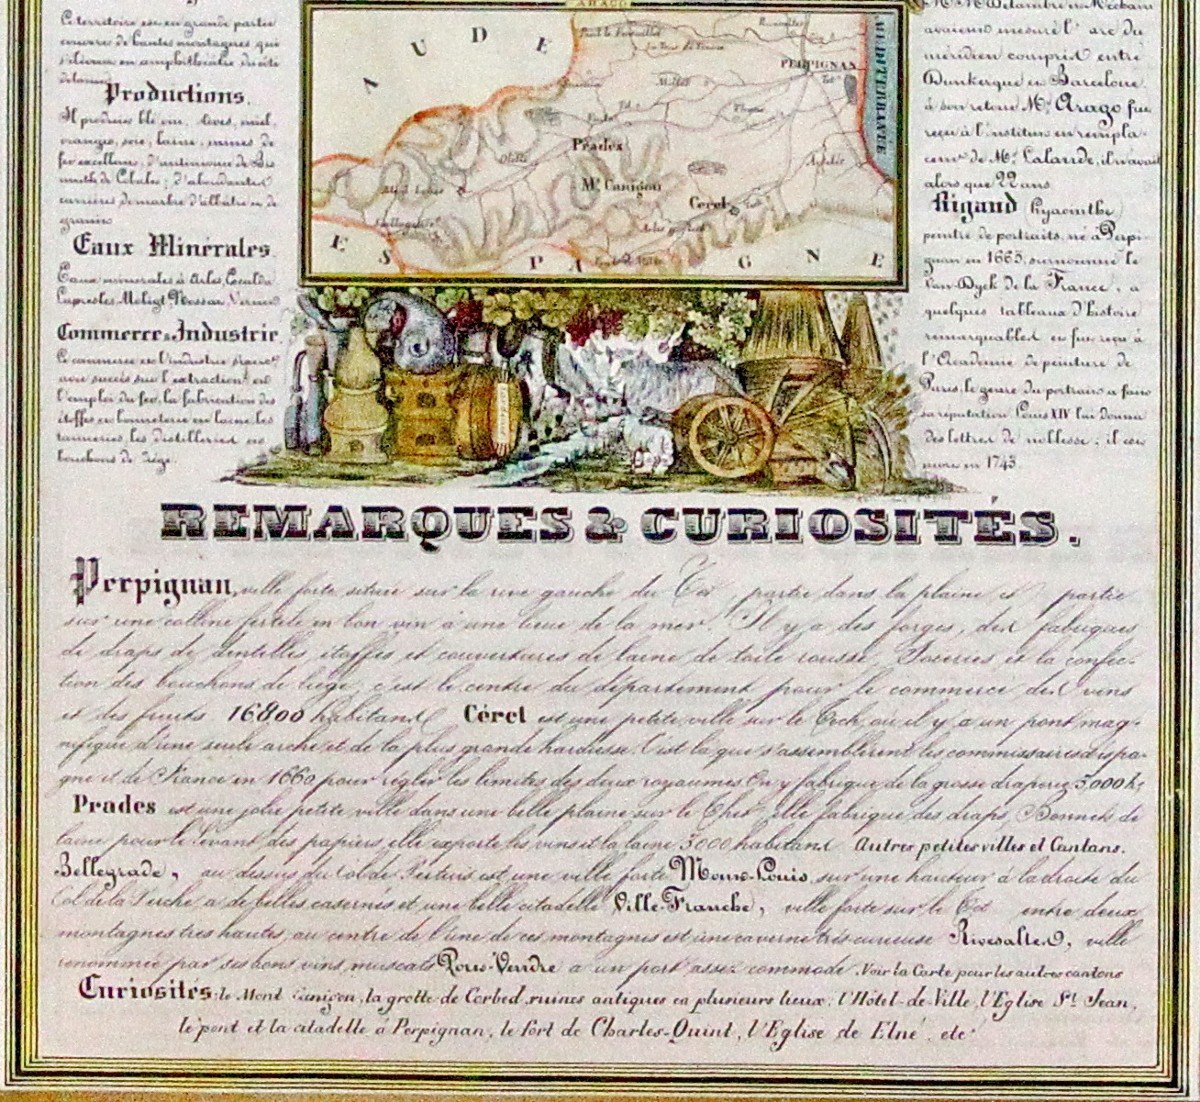 Le territoire est en grande partie
couvert de hautes montagnes qui
s'élèvent en amphithéâtre
Productions.
Il produit blé vin, olives, miel,
oranges, soie, laine, mines de
fer excellent, d'antimoine de Bis
muth de Cobalt; d'abondantes
carrières de marbre d'albâtre et de
granite
Eaux Minérales.
Eaux minérales à Arles, Escaldas
Moligt Vernet
Commerce & Industrie
Le commerce et l'industrie
avec succès sur l'extraction et
l'emploi du fer, la fabrication des
étoffes et bonneterie en laine, les
tanneries, les distilleries et
bouchons de liège.
ARAGO
AUDE
PERPIGNAN
MEDITERRANEE
Prades
Olette
Mt. Canigou
Ceret
Mont Louis
ESPAGNE
Mrs. Delambre et Méchain
avaient mesuré l'arc du
méridien compris entre
Dunkerque et Barcelone.
à son retour Mr. Arago fut
reçu à l'institut en rempla-
cemt de Mr. Lalande, il n'avait
alors que 22 ans
Rigaud Hyacinthe
peintre de portraits, né à Perpi-
gnan en 1663, surnommé le
Van-Dyck de la France, a
quelques tableaux d'histoire
remarquables et fut reçu à
l'Académie de peinture de
Paris, le genre du portrait a fait
sa réputation Louis XIV lui donna
des lettres de noblesse; il est
mort en 1743.
REMARQUES & CURIOSITÉS.
Perpignan, ville forte située sur la rive gauche du Tet, partie dans la plaine et partie
sur une colline fertile en bon vin à une lieue de la mer. Il y a des forges, des fabriques
de draps de dentelles étoffes et couvertures de laine de toile rousse, et la confec-
tion des bouchons de liège, c'est le centre du département pour le commerce des vins
et des fruits 16800 habitans Céret est une petite ville sur le Tech, où il y a un pont mag-
nifique d'une seule arche et de la plus grande hardiesse. C'est là que s'assemblèrent les commissaires d'espa-
gne et de France en 1660 pour régler les limites des deux royaumes. On y fabrique de la grosse draperie 3,000 h.
Prades est une jolie petite ville dans une belle plaine sur le Thet elle fabrique des draps, Bonnets de
laine pour le levant, des papiers, elle exporte les vins et la laine 3000 habitans Autres petites villes et Cantons.
Bellegrade, au dessus du Col de Pertuis est une ville forte Mont-Louis sur une hauteur à la droite du
Col de la Perche a de belles casernes et une belle citadelle Ville-Franche, ville forte sur le Tet entre deux
montagnes très hautes, au centre de l'une de ces montagnes est une caverne très curieuse Rivesaltes, ville
renommée par ses bons vins muscats Port-Vendre a un port assez commode. Voir la Carte pour les autres cantons
Curiosités. le Mont Canigou, la grotte de Corbed, ruines antiques en plusieurs lieux, l'Hôtel-de-Ville, l'Eglise St. Jean,
le pont et la citadelle à Perpignan, le fort de Charles-Quint, l'Eglise de Elne, etc